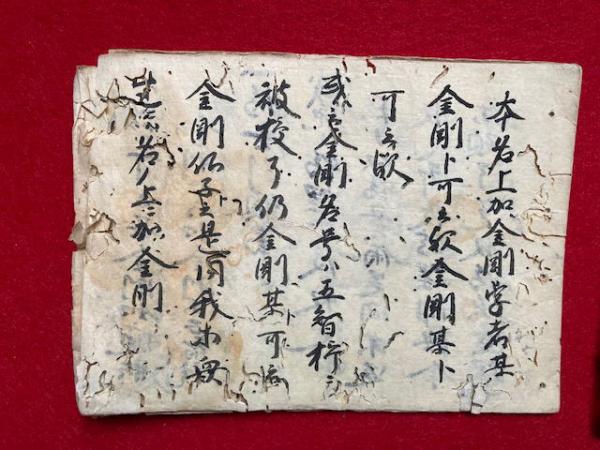 本名上加金剛字者某
金剛ト可云歟金剛某ト
可云歟
或云金剛名号ハ五智
被授了仍金剛某可
金剛仏子ト云是同我等
名ノ上ニ加金剛